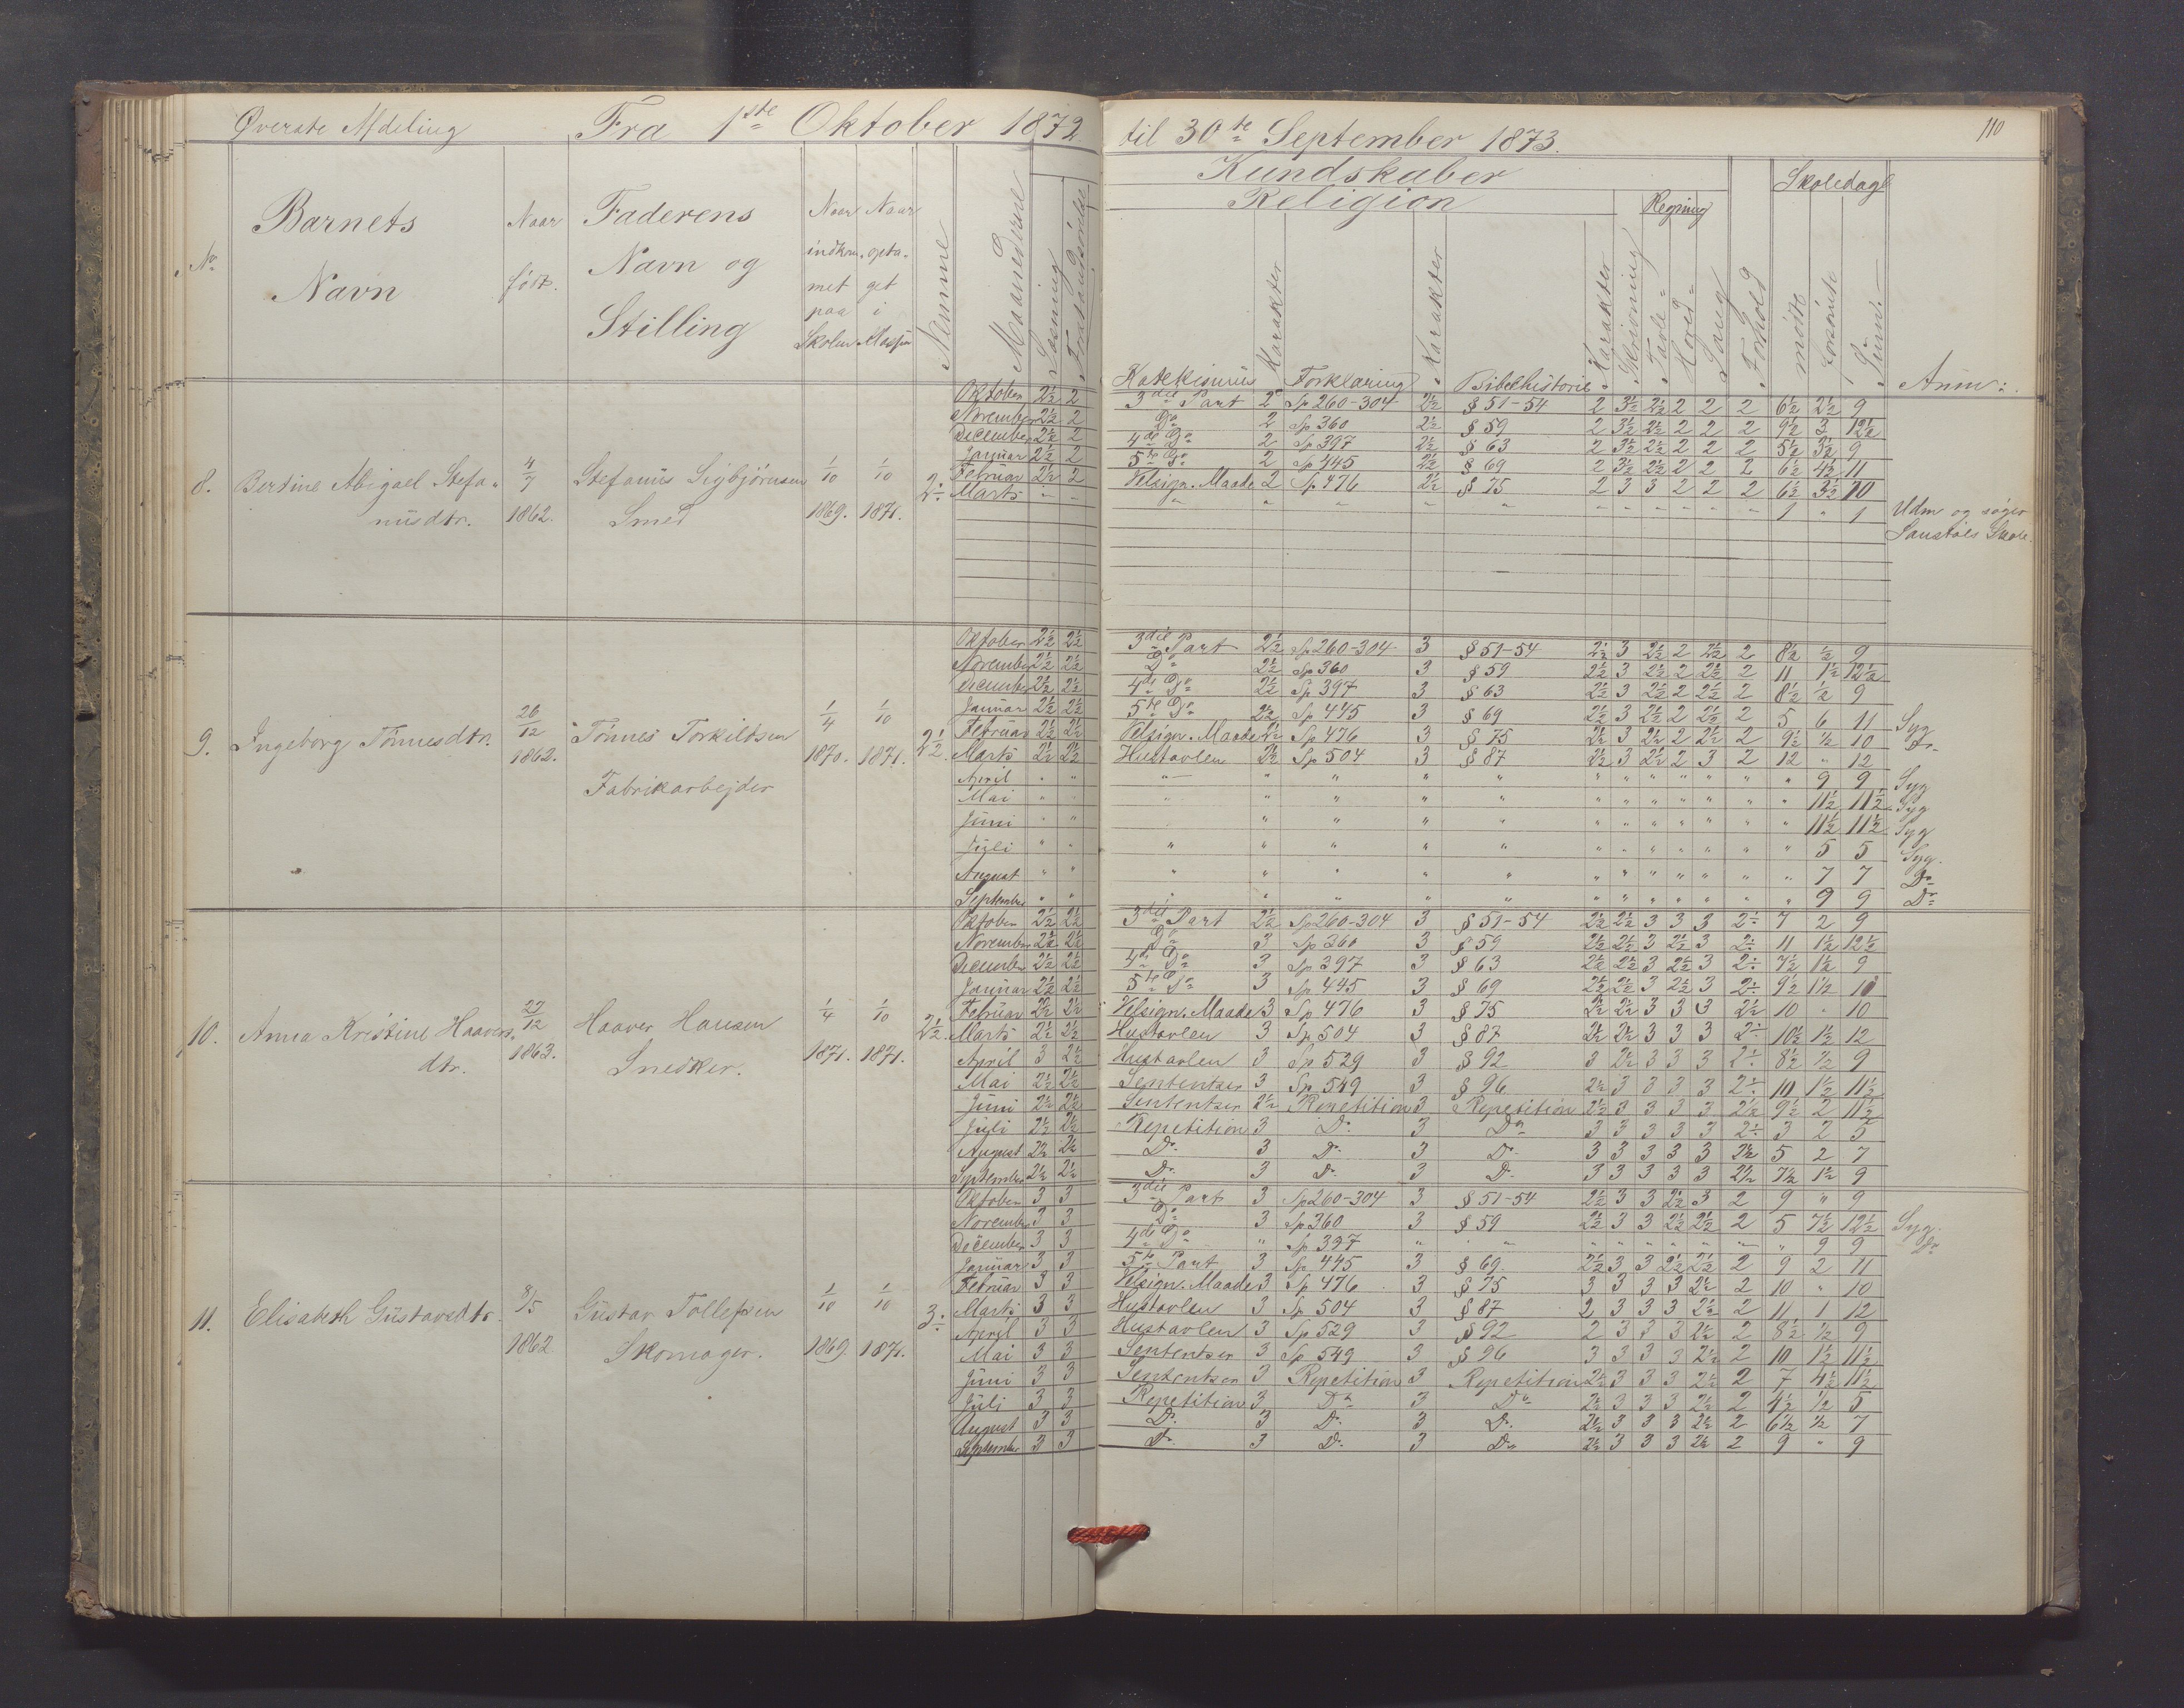 Øverste Afdeling Fra 1ste Oktober 1872 til 30te September 1873. 110
Kundskaber
Religion Regning Skoledage
No. Barnets Navn Naar født. Faderens Navn og Stilling Naar indkommet paa Skolen Naar optaget i Klassen Nemme Maanederne Læsning Forstandsøvelse Katekismus Karakter Forklaring Karakter Bibelhistorie Karakter Skrivning Tavle- Hoved- Sang Forhold mødte forsømte Sum: Anm:
8. Bertine Abigael Stefanusdtr. 4/7 1862. Stefanus Sigbjørnsen Smed 1/10 1869. 1/10 1871. 2÷
Oktober 2½ 2 3die Part 2 Sp 260-304 2½ § 51-54 2 3½ 2½ 2 2 2 6½ 2½ 9
November 2½ 2 Do 2 Sp 360 2½ § 59 2 3½ 2½ 2 2 2 9½ 3 12½
December 2½ 2 4de Do 2 Sp 397 2½ § 63 2 3½ 2½ 2 2 2 5½ 3½ 9
Januar 2½ 2 5te Do 2 Sp 445 2½ § 69 2 3½ 2½ 2 2 2 6½ 4½ 11
Februar 2½ 2 Velsign. Maade 2 Sp 476 2½ § 75 2 3 3 2 2 2 6½ 3½ 10
Marts " " " " " " " " " " " " " " 1 " 1 Udm og søger
Skole.
9. Ingeborg Tønnesdtr. 26/12 1862. Tønnes Torkildsen Fabrikarbejder 1/4 1870. 1/10 1871. 2½.
Oktober 2½ 2½ 3die Part 2½ Sp 260-304 3 § 51-54 2½ 3 2½ 2 2½ 2 8½ ½ 9
November 2½ 2½ Do 2½ Sp 360 3 § 59 2½ 3 2½ 2 2½ 2 11 1½ 12½
December 2½ 2½ 4de Do 2½ Sp 397 3 § 63 2½ 3 2½ 2 2½ 2 8½ ½ 9
Januar 2½ 2½ 5te Do 2½ Sp 445 3 § 69 2½ 3 2½ 2 2½ 2 5 6 11 Syg
Februar 2½ 2½ Velsign. Maade 2½ Sp 476 3 § 75 2½ 3 2½ 2 2½ 2 9½ ½ 10 Do
Marts 2½ 2½ Hustavlen 2½ Sp 504 3 § 87 2½ 3 2½ 2 3 2 12 " 12
April " " " " " " " " " " " " " " " 9 9 Syg
Mai " " " " " " " " " " " " " " " 11½ 11½ Syg
Juni " " " " " " " " " " " " " " " 11½ 11½ Syg
Juli " " " " " " " " " " " " " " " 5 5 Syg.
August " " " " " " " " " " " " " " " 7 7 Do
September " " " " " " " " " " " " " " " 9 9 Do
10. Anna Kristine Haavers dtr. 27/12 1863. Haaver Hansen Snedker. 1/4 1871. 1/10 1871. 2½.
Oktober 2½ 2½ 3die Part 2½ Sp 260-304 3 § 51-54 2½ 2½ 3 3 3 2÷ 7 2 9
November 2½ 2½ Do 3 Sp 360 3 § 59 2½ 2½ 3 2½ 3 2÷ 11 1½ 12½
December 2½ 2½ 4de Do 3 Sp 397 3 § 63 2½ 2½ 3 2½ 3 2÷ 7½ 1½ 9
Januar 2½ 2½ 5te Do 3 Sp 445 3 § 69 2½ 2½ 3 2½ 3 2÷ 9½ 1½ 11
Februar 2½ 2½ Velsign. Maade 3 Sp 476 3 § 75 2½ 2½ 3 3 3 2½ 10 " 10
Marts 2½ 2½ Hustavlen 3 Sp 504 3 § 87 2½ 2½ 3 3 3 2÷ 10½ 1½ 12
April 3 2½ Hustavlen 3 Sp 529 3 § 92 3 2½ 3 3 3 2÷ 8½ ½ 9
Mai 2½ 2½ Sententser 3 Sp 549 3 § 96 2½ 3 3 3 3 2÷ 10 1½ 11½
Juni 2½ 2½ Sententser 2½ Repetition 3 Repetition 2½ 3 3 3 3 2½ 9½ 2 11½
Juli 2½ 2½ Repetition 3 Do 3 Do 3 3 3 3 3 2÷ 3 2 5
August 2½ 2½ Do 3 Do 3 Do 3 3 3 3 3 2½ 5 2 7
September 2½ 2½ Do 3 Do 3 Do 3 3 3 3 3 2½ 7½ 1½ 9
11. Elisabeth Gustavsdtr. 8/5 1862. Gustav Tollefsen Skomager. 1/10 1869. 1/10 1871. 3÷
Oktober 3 3 3die Part 3 Sp 260-304 3 § 51-54 2½ 3 3 2½ 3 2 9 " 9
November 3 3 Do 3 Sp 360 3 § 59 2½ 3 3 2½ 2½ 2 5 7½ 12½ Syg.
December 3 3 4de Do " Sp 397 " " " " " " " " " 9 9 Do
Januar 3 3 5te Part 3 Sp 445 3 § 69. 2½ 3 3 2½ 2½ 2 9 2 11
Februar 3 3 Velsign. Maade 3 Sp 476 3 § 75 3 3 3 3 2½ 2 10 " 10
Marts 3 3 Hustavlen 3 Sp 504 3 § 87 2 3 3 3 2½ 2 11 1 12
April 3 3 Hustavlen 3 Sp 529 3 § 92 2 3 3 3 2½ 2 8½ ½ 9
Mai 3 3 Sententser 3 Sp 549 3 § 96 3 3 3 3 2½ 2 10 1½ 11½
Juni 3 3 Sententser 3 Repetition 3 Repetition 2½ 3 3 3 2½ 2 7 4½ 11½
Juli 3 3 Repetition 3 Do 3 Do 2½ 3 3 3 2½ 2 4½ ½ 5
August 3 3 Do 3 Do 3 Do 2½ 3 3 3 2½ 2 6½ ½ 7
September 3 3 Do 3 Do 3 Do 2½ 3 3 3 2½ 2 9 " 9